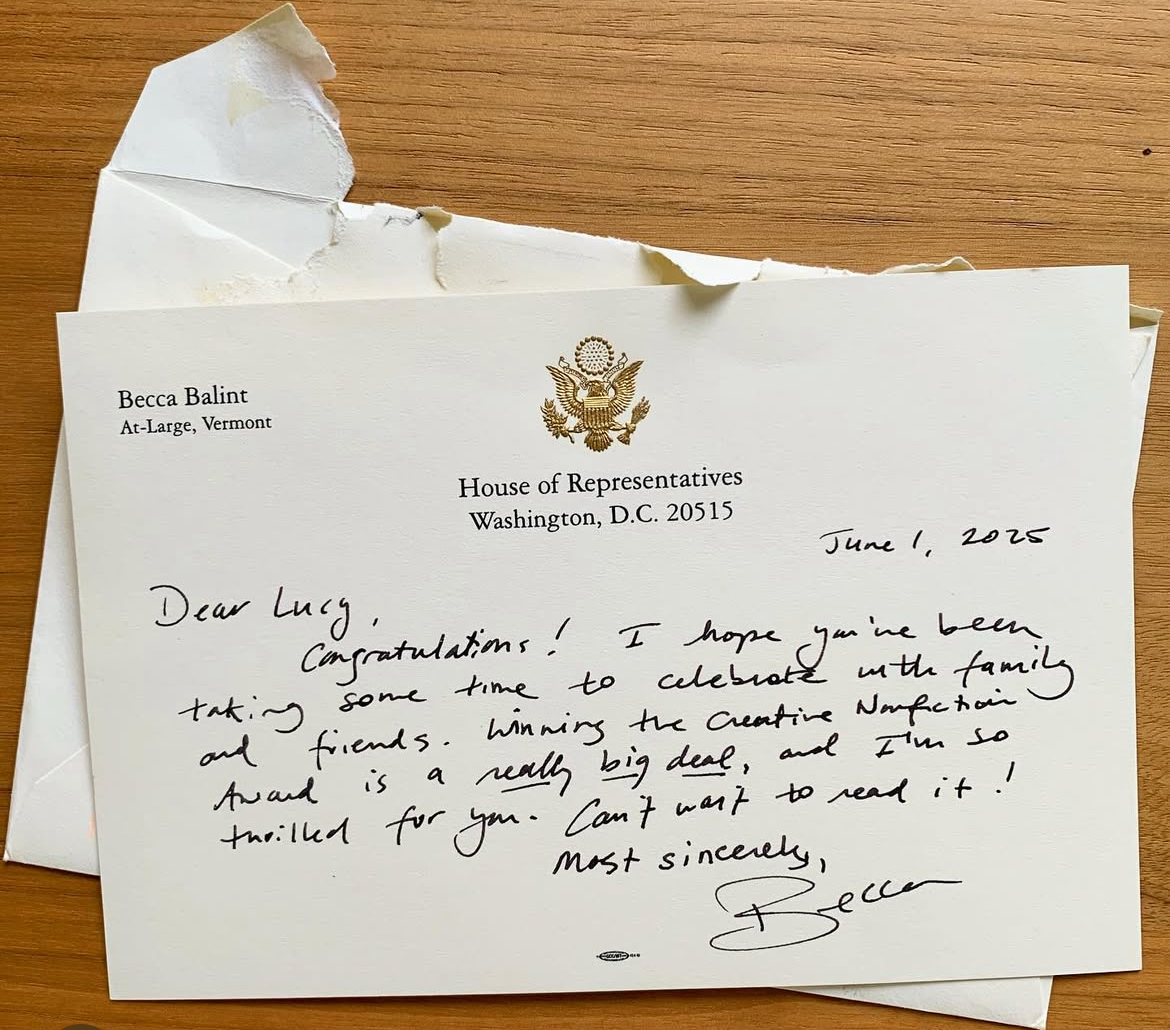 Becca Balint
At-Large, Vermont
House of Representatives
Washington, D.C. 20515
June 1, 2025
Dear Lucy,
Congratulations! I hope you've been
taking some time to celebrate with family
and friends. Winning the Creative Nonfiction
Award is a really big deal, and I'm so
thrilled for you. Can't wait to read it!
Most sincerely,
Becca